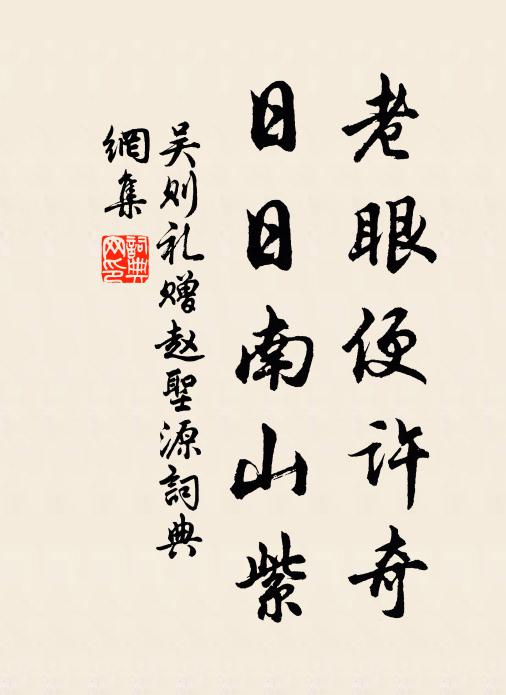 老眼便许奇
日日南山紫
吴则礼赠赵聖源詞典
網集
詞典網印